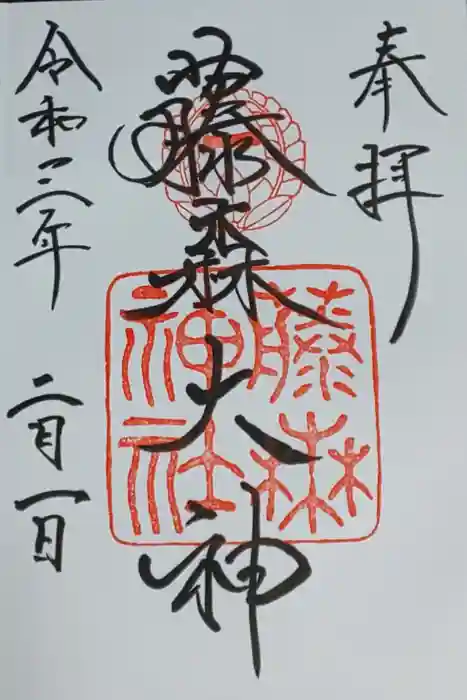 奉拝
藤森大神
藤森
神社
令和三年
二月一日